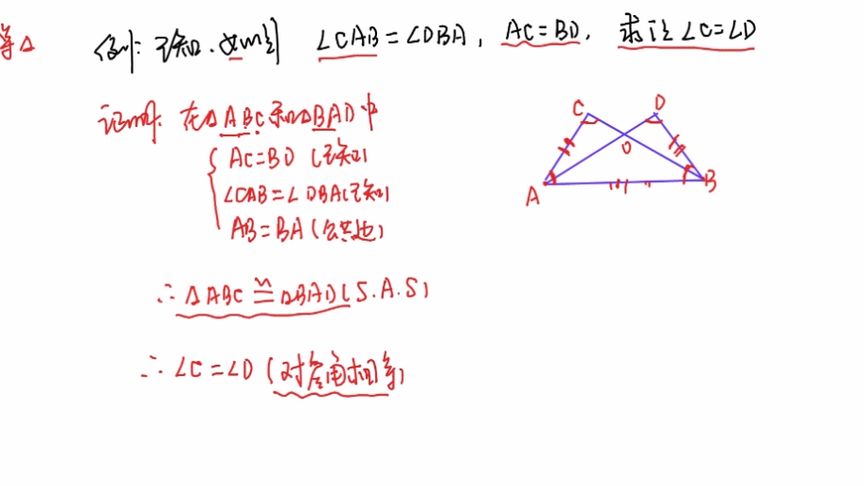 等△
例: 已知, 如图 ∠CAB=∠DBA, AC=BD, 求证∠C=∠D
证明: 在△ABC和△BAD中
AC=BD (已知)
∠CAB=∠DBA(已知)
AB=BA(公共边)
∴△ABC≌△BAD(S.A.S)
∴∠C=∠D(对应角相等)
C D
O
A B